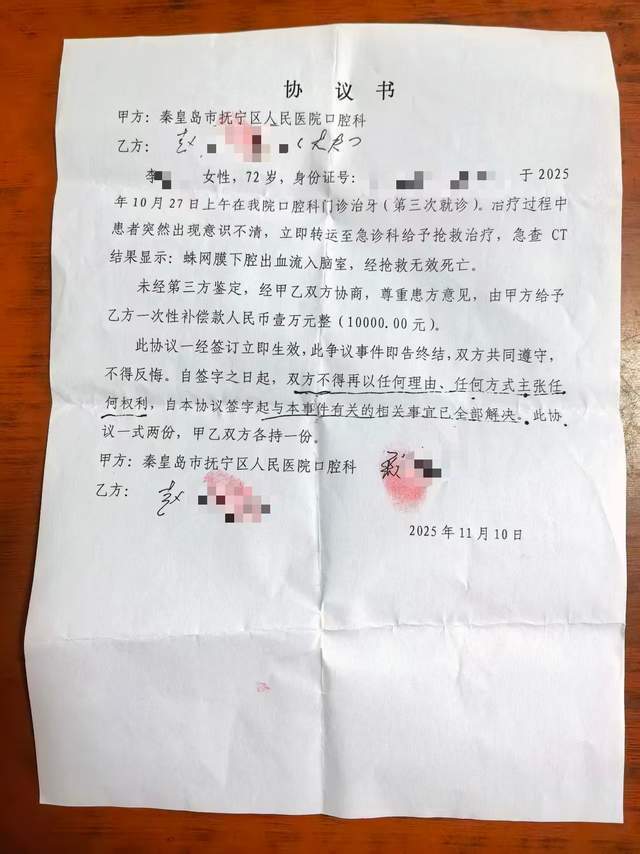 协议书
甲方：秦皇岛市抚宁区人民医院口腔科
乙方：赵
李 女性，72岁，身份证号： 于2025
年10月27日上午在我院口腔科门诊治牙（第三次就诊）。治疗过程中
患者突然出现意识不清，立即转运至急诊科给予抢救治疗，急查 CT
结果显示：蛛网膜下腔出血流入脑室，经抢救无效死亡。
未经第三方鉴定，经甲乙双方协商，尊重患方意见，由甲方给予
乙方一次性补偿款人民币壹万元整（10000.00元）。
此协议一经签订立即生效，此争议事件即告终结，双方共同遵守，
不得反悔。自签字之日起，双方不得再以任何理由、任何方式主张任
何权利，自本协议签字起与本事件有关的相关事宜已全部解决。此协
议一式两份，甲乙双方各持一份。
甲方：秦皇岛市抚宁区人民医院口腔科
乙方：赵
2025年11月10日